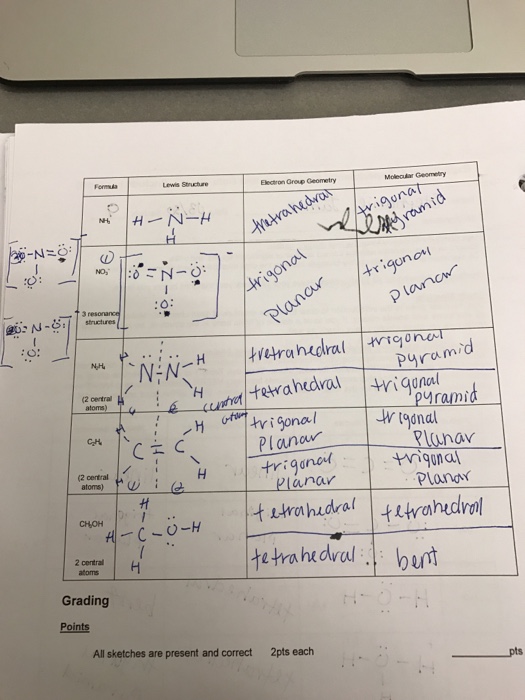 Formula Lewis Structure Electron Group Geometry Molecular Geometry
NH₃ H-N-H tetrahedral trigonal pyramid
H
NO₃⁻ O=N-O: trigonal planar trigonal planar
:O:
3 resonance
structures
-N=O:
:O:
N-O:
:O:
N₂H₄ H N-N-H tretrahedral trigonal pyramid
H H tetrahedral trigonal pyramid
(2 central
atoms)
central
atom
C₂H₄ H C=C-H trigonal planar trigonal planar
H H trigonal planar trigonal planar
(2 central
atoms)
CH₃OH H tetrahedral tetrahedral
H-C-O-H
H tetrahedral bent
2 central
atoms
Grading
Points
All sketches are present and correct 2pts each ______pts